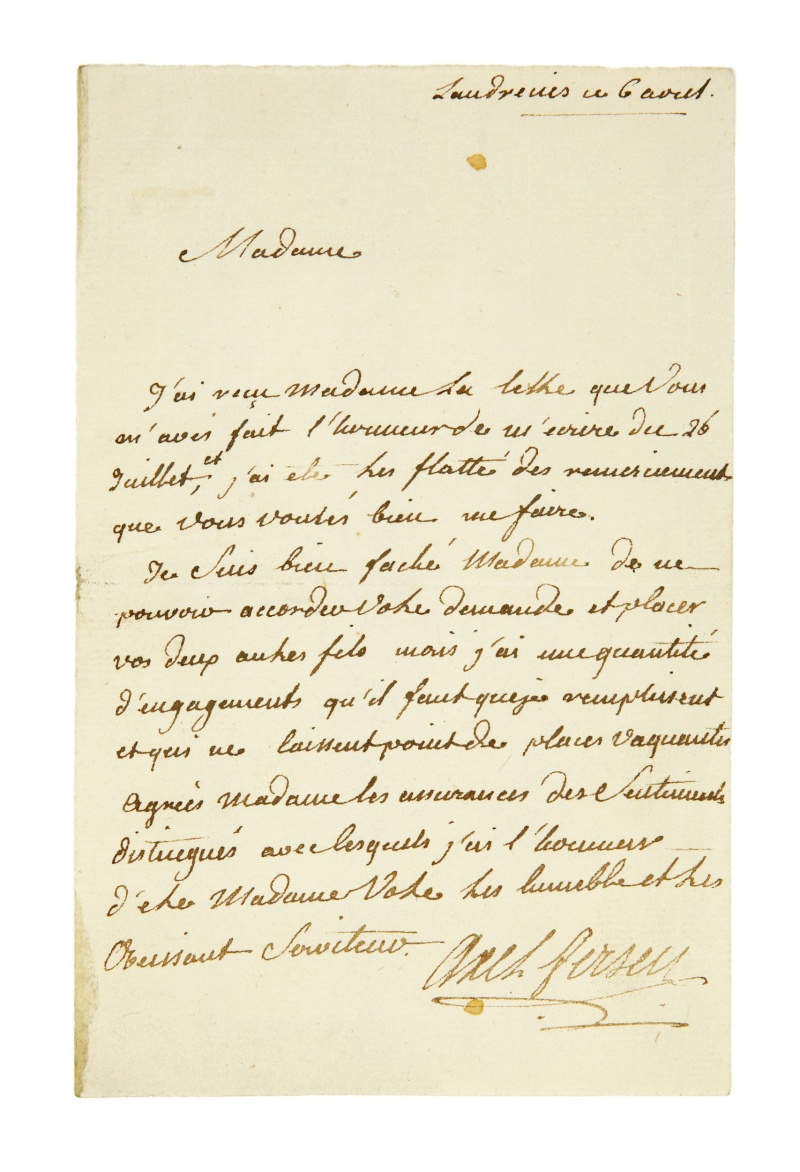 Landrecies ce 6 aout.
Madame
J'ai reçu Madame La lettre que Vous
m'avés fait l'honneur de m'ecrire du 26
Juillet, et j'ai ete tres flatté des remerciement
que Vous voulés bien me faire.
Je Suis bien faché Madame de ne
pouvoir accorder Votre demande et placer
vos deux autres fils mais j'ai une quantité
d'engagements qu'il faut que je remplissent
et qui ne laissent point de places vaquantes
Agreés Madame les assurances des Sentiments
distingués avec lesquels j'ai l'honneur
d'etre Madame Votre tres humble et tres
Obeissant Serviteur.
Axel Fersen